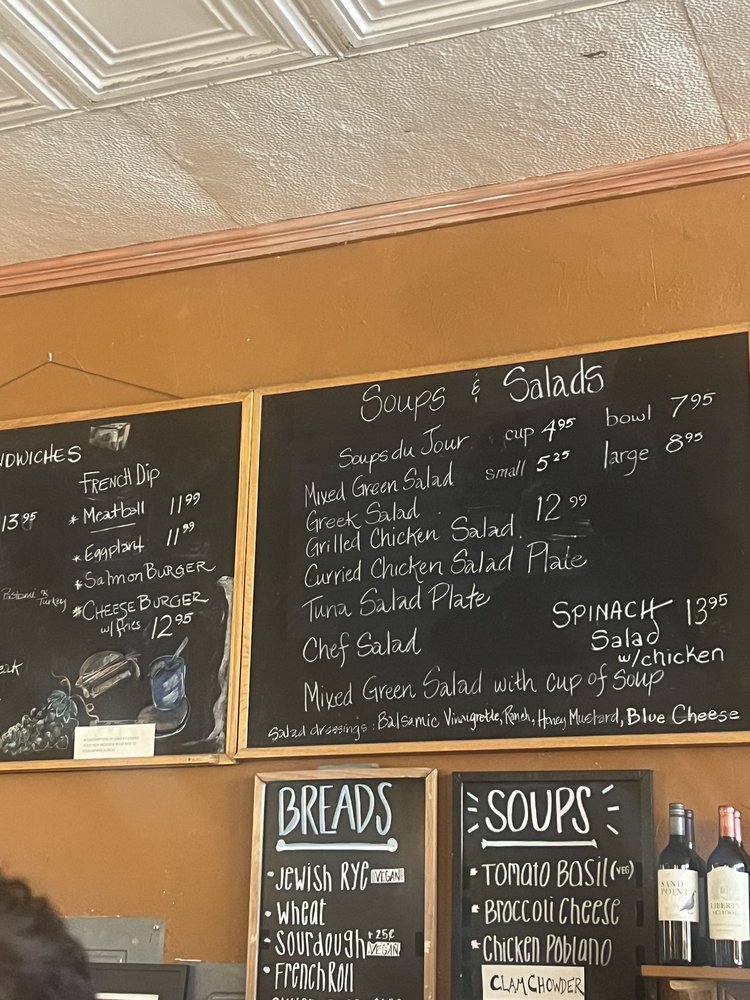 SANDWICHES
FRENCH DIP
13.95
* Meatball 11.99
* Eggplant 11.99
* Salmon BURGER
Pastrami or
Turkey
* CHEESE BURGER
w/fries 12.95
Soups & Salads
Soups du Jour cup 4.95 bowl 7.95
Mixed Green Salad small 5.25 large 8.95
Greek Salad
Grilled Chicken Salad. 12.99
Curried Chicken Salad Plate
Tuna Salad Plate
SPINACH 13.95
Salad
w/chicken
Chef Salad
Mixed Green Salad with cup of Soup
Salad dressings: Balsamic Vinaigrette, Ranch, Honey Mustard, Blue Cheese
BREADS
• Jewish Rye VEGAN
• Wheat
• Sourdough +25¢ VEGAN
• French Roll
SOUPS
* Tomato Basil (VEG)
* Broccoli Cheese
* Chicken Poblano
CLAM CHOWDER
SAND
POINT
LIBERTY
SCHOOL